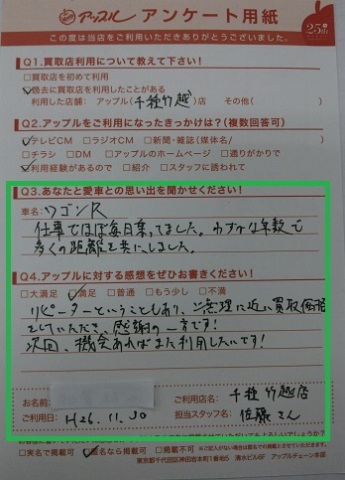 アップル アンケート用紙 25th
この度は当店をご利用いただきありがとうございました。
Q1.買取店利用について教えて下さい!
□買取店を初めて利用
☑過去に買取店を利用したことがある
利用した店舗: アップル(千種竹越)店 その他( )
Q2.アップルをご利用になったきっかけは?(複数回答可)
☑テレビCM □ラジオCM □新聞・雑誌(媒体名/ )
□チラシ □DM □アップルのホームページ □通りがかりで
☑利用経験があるので □紹介 □スタッフに誘われて
Q3.あなたと愛車との思い出を聞かせください!
車名: ワゴンR
仕事でほぼ毎日乗ってました。わずかな年数で
多くの距離を共にしました。
Q4.アップルに対する感想をぜひお書きください!
□大満足 ☑満足 □普通 □もう少し □不満
リピーターということもあり、ご無理に近い買取価格
をしていただき、感謝の一言です!
次回、機会あればまた利用したいです!
お名前:
ご利用店名: 千種竹越店
ご利用日: H26.11.30
担当スタッフ名: 佐藤さん
□実名で掲載可 ☑匿名なら掲載可 □掲載不可
東京都千代田区神田岩本町1番地5 清水ビル6F アップルチェーン本部